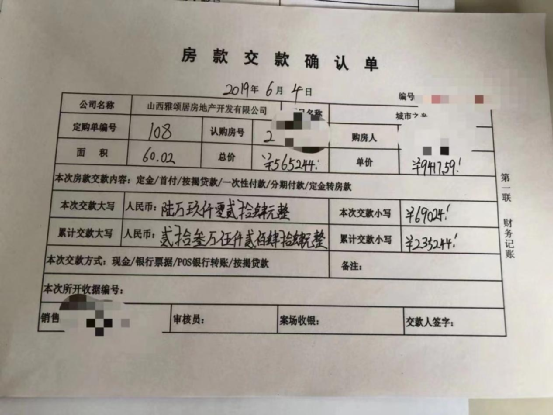 房款交款确认单
2019年6月4日
编号
公司名称 山西雅颂居房地产开发有限公司 名称 城市之
定购单编号 108 认购房号 2 购房人
面积 60.02 总价 ¥565244 单价 ¥9417.59
本次房款交款内容：定金/首付/按揭贷款/一次性付款/分期付款/定金转房款
本次交款大写 人民币：陆万玖仟零贰拾肆元整 本次交款小写 ¥69024
累计交款大写 人民币：贰拾叁万伍仟贰佰肆拾肆元整 累计交款小写 ¥235244
本次交款方式：现金/银行票据/POS银行转账/按揭贷款 备注：
本次所开收据编号：
销售 审核员： 案场收银： 交款人签字：
第一联 财务记账